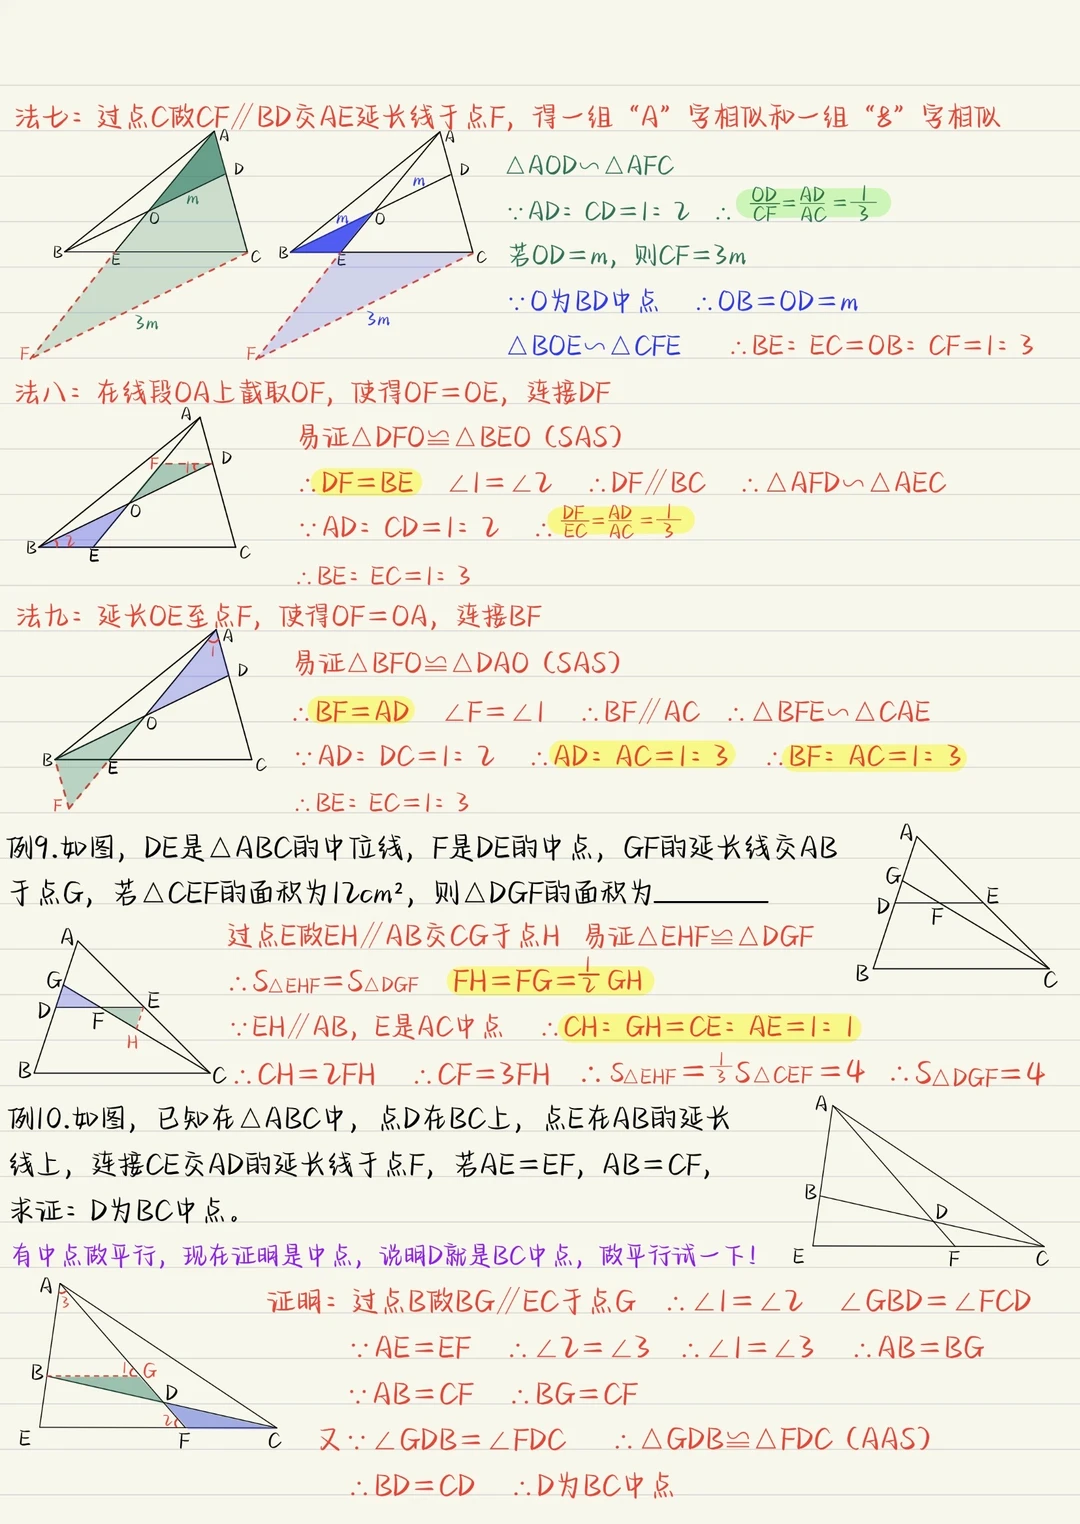 法七：过点C做CF∥BD交AE延长线于点F，得一组“A”字相似和一组“8”字相似
A D O m B E C 3m F
A D m m O B E C 3m F
△AOD∽△AFC
∵AD：CD=1：2 ∴OD/CF=AD/AC=1/3
若OD=m，则CF=3m
∵O为BD中点 ∴OB=OD=m
△BOE∽△CFE ∴BE：EC=OB：CF=1：3
法八：在线段OA上截取OF，使得OF=OE，连接DF
A F 1 D O B 2 E C
易证△DFO≌△BEO（SAS）
∴DF=BE ∠1=∠2 ∴DF∥BC ∴△AFD∽△AEC
∵AD：CD=1：2 ∴DF/EC=AD/AC=1/3
∴BE：EC=1：3
法九：延长OE至点F，使得OF=OA，连接BF
A 1 D O B E C F
易证△BFO≌△DAO（SAS）
∴BF=AD ∠F=∠1 ∴BF∥AC ∴△BFE∽△CAE
∵AD：DC=1：2 ∴AD：AC=1：3 ∴BF：AC=1：3
∴BE：EC=1：3
例9.如图，DE是△ABC的中位线，F是DE的中点，GF的延长线交AB
于点G，若△CEF的面积为12cm²，则△DGF的面积为________
A G D F E B C
A G D F E H B C
过点E做EH∥AB交CG于点H 易证△EHF≌△DGF
∴S△EHF=S△DGF FH=FG=1/2 GH
∵EH∥AB，E是AC中点 ∴CH：GH=CE：AE=1：1
∴CH=2FH ∴CF=3FH ∴S△EHF=1/3 S△CEF=4 ∴S△DGF=4
例10.如图，已知在△ABC中，点D在BC上，点E在AB的延长
线上，连接CE交AD的延长线于点F，若AE=EF，AB=CF，
求证：D为BC中点。
A B D E F C
有中点做平行，现在证明是中点，说明D就是BC中点，做平行试一下！
A 3 B 1 G D 2 E F C
证明：过点B做BG∥EC于点G ∴∠1=∠2 ∠GBD=∠FCD
∵AE=EF ∴∠2=∠3 ∴∠1=∠3 ∴AB=BG
∵AB=CF ∴BG=CF
又∵∠GDB=∠FDC ∴△GDB≌△FDC（AAS）
∴BD=CD ∴D为BC中点